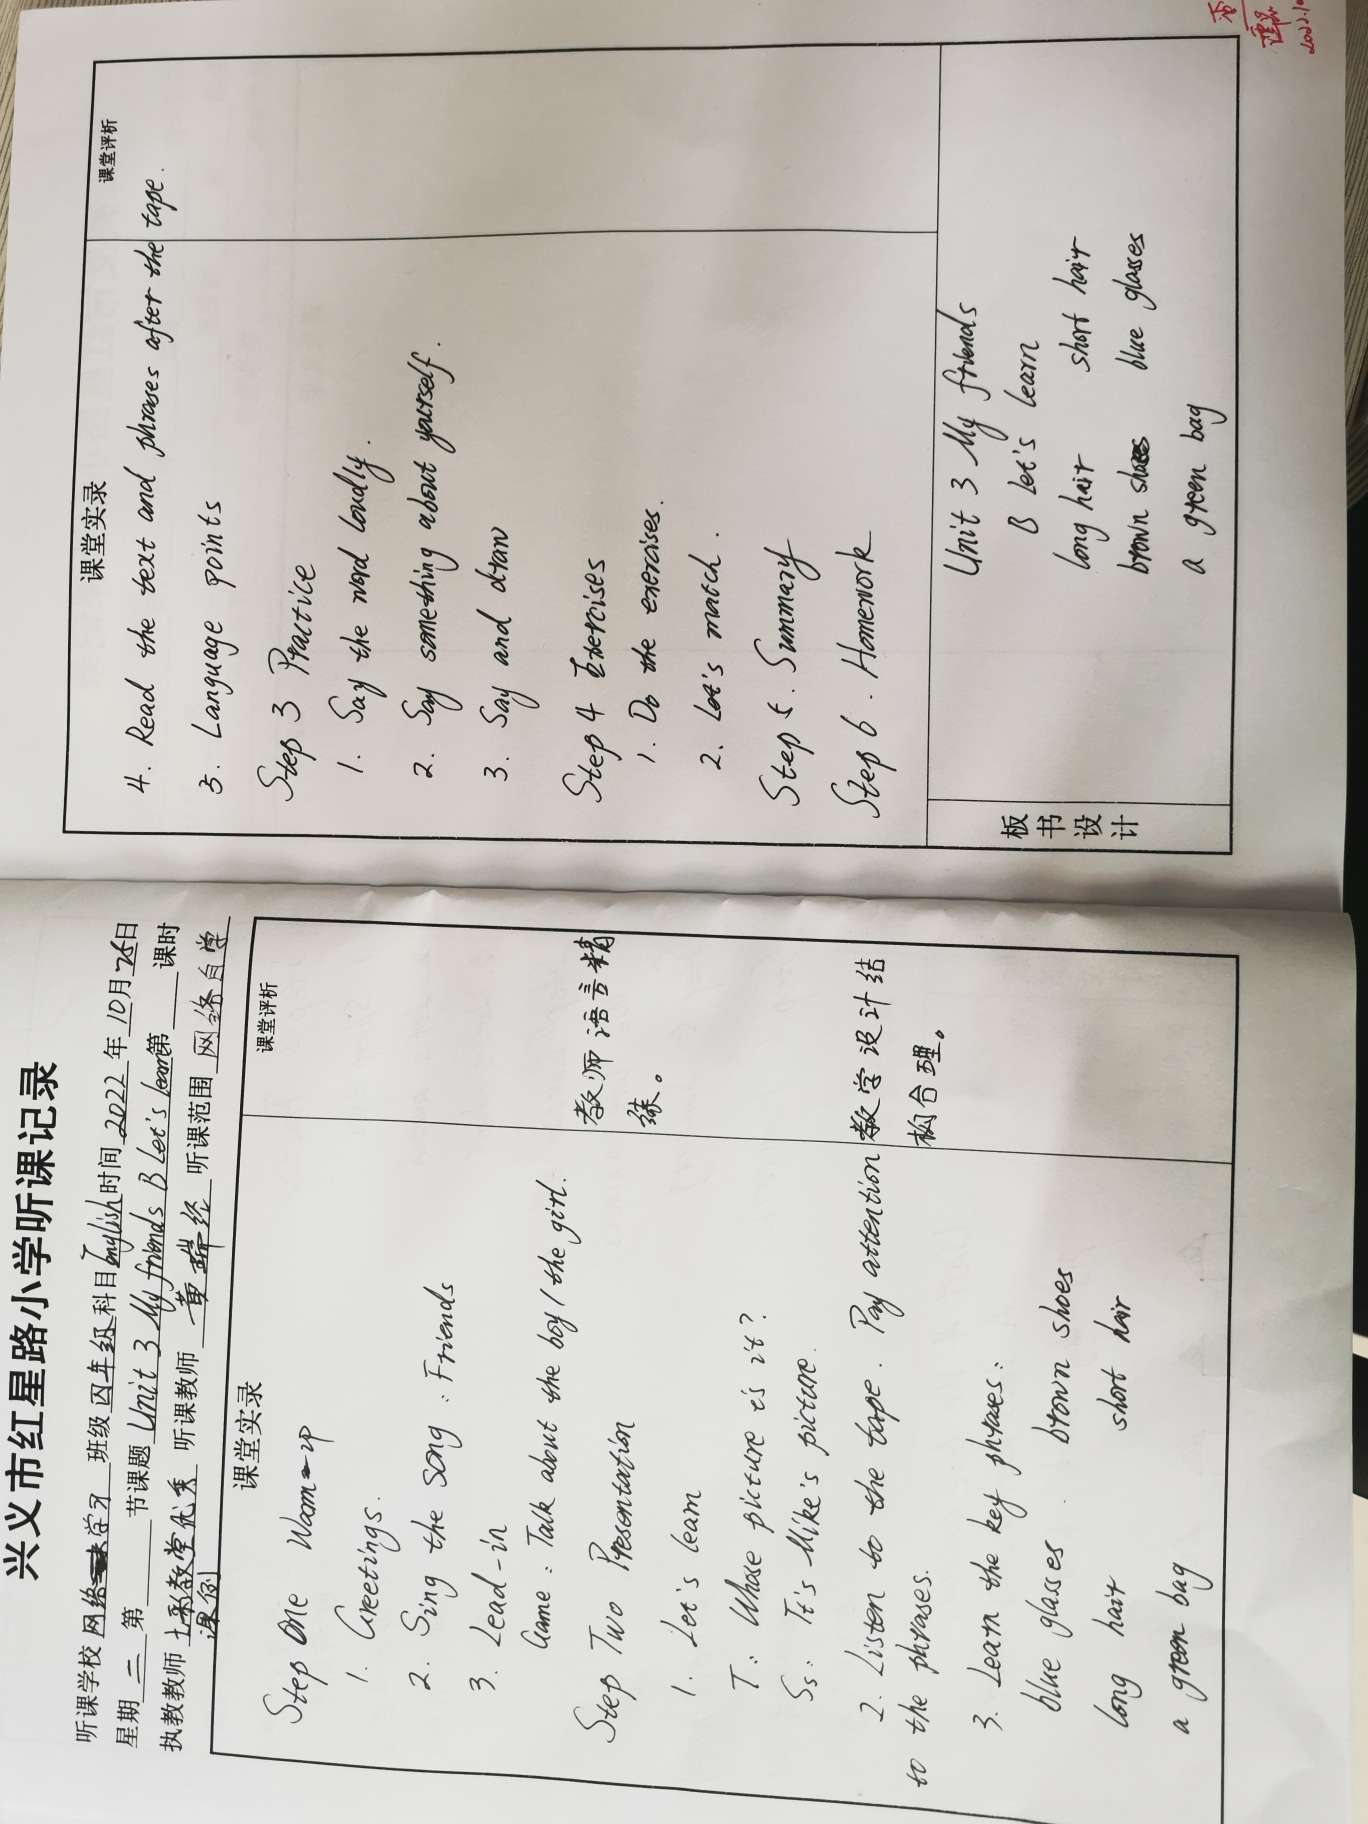 兴义市红星路小学听课记录
听课学校 网络学习 班级 四年级 科目 English 时间 2022 年 10 月 26 日
星期 三 第 节课题 Unit 3 My friends B Let's learn 第 课时
执教教师 部教学优秀 听课教师 黄 经 听课范围 网络自学
课例
课堂实录 课堂评析
Step One Warm-up
1. Greetings.
2. Sing the song : Friends
3. Lead-in
Game : Talk about the boy / the girl.
Step Two Presentation
教师语言精
练。
1. Let's learn
T : Whose picture is it?
Ss : It's Mike's picture.
2. Listen to the tape. Pay attention
to the phrases.
教学设计结
构合理。
3. Learn the key phrases:
blue glasses brown shoes
long hair short hair
a green bag
课堂实录 课堂评析
4. Read the text and phrases after the tape.
5. Language points
Step 3 Practice
1. Say the word loudly.
2. Say something about yourself.
3. Say and draw
Step 4 Exercises
1. Do the exercises.
2. Let's match.
Step 5. Summary
Step 6. Homework
板书设计
Unit 3 My friends
B Let's learn
long hair short hair
brown shoes blue glasses
a green bag